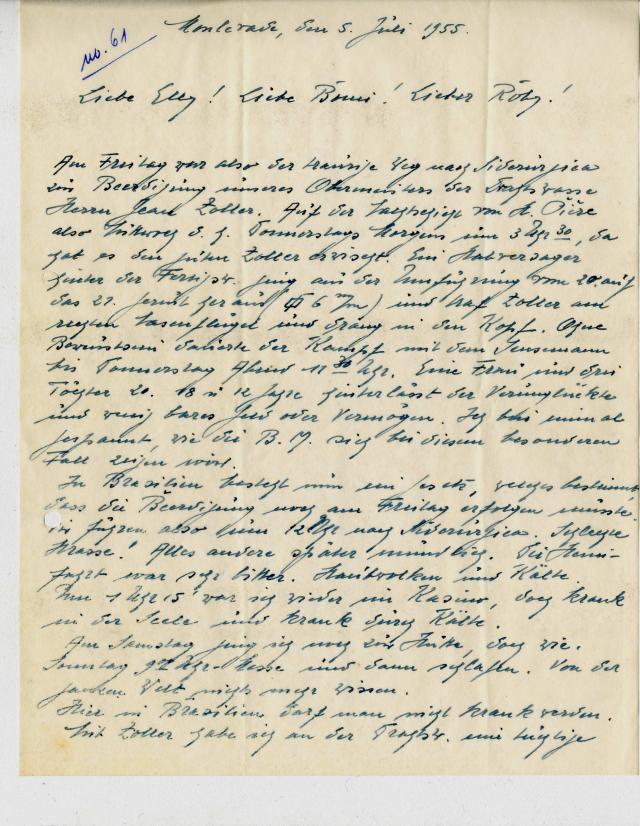 no. 61
Monlevade, den 5. Juli 1955.
Liebe Elly! Liebe Bomi! Lieber Röby!
Am Freitag war also der traurige Weg nach Siderúrgica
zur Beerdigung unseres Obermeisters der Drahtstrasse
Herrn Jean Zoller. Auf der
also Mittwoch d. h. Donnerstags Morgens um 3 Uhr 30, da
hat es den guten Zoller erwischt. Ein Halbversager
hinter der Fertigstr. ging aus der Umführung vom 20. auf
das 21. Gerüst heraus (⌀ 6 mm) und traf Zoller am
rechten Nasenflügel und drang in den Kopf. Ohne
Bewusstsein dauerte der Kampf mit dem Sensemann
bis Donnerstag Abend 11 30 Uhr. Eine Frau und drei
Töchter 20. 18 u 12 Jahre hinterlässt der Verunglückte
und wenig bares Geld oder Vermögen. Ich bin einmal
gespannt, wie die B. M. sich bei diesem besonderen
Fall zeigen wird.
In Brasilien besteht nun ein Gesetz, welches bestimmt
dass die Beerdigung noch am Freitag erfolgen müsste
wir fuhren also um 12 Uhr nach Siderúrgica. Schlechte
Strasse! Alles andere später mündlich. Die Heim-
fahrt war sehr bitter. Staubwolken und Kälte.
Um 1 Uhr 15 war ich wieder im Kasino, doch krank
in der Seele und krank durch Kälte.
Am Samstag ging ich noch zur Hütte, doch wie.
Sonntag 9 Uhr-Messe und dann schlafen. Von der
ganzen Welt nichts mehr wissen.
Hier in Brasilien darf man nicht krank werden.
Mit Zoller habe ich an der Drahtstr. eine tüchtige